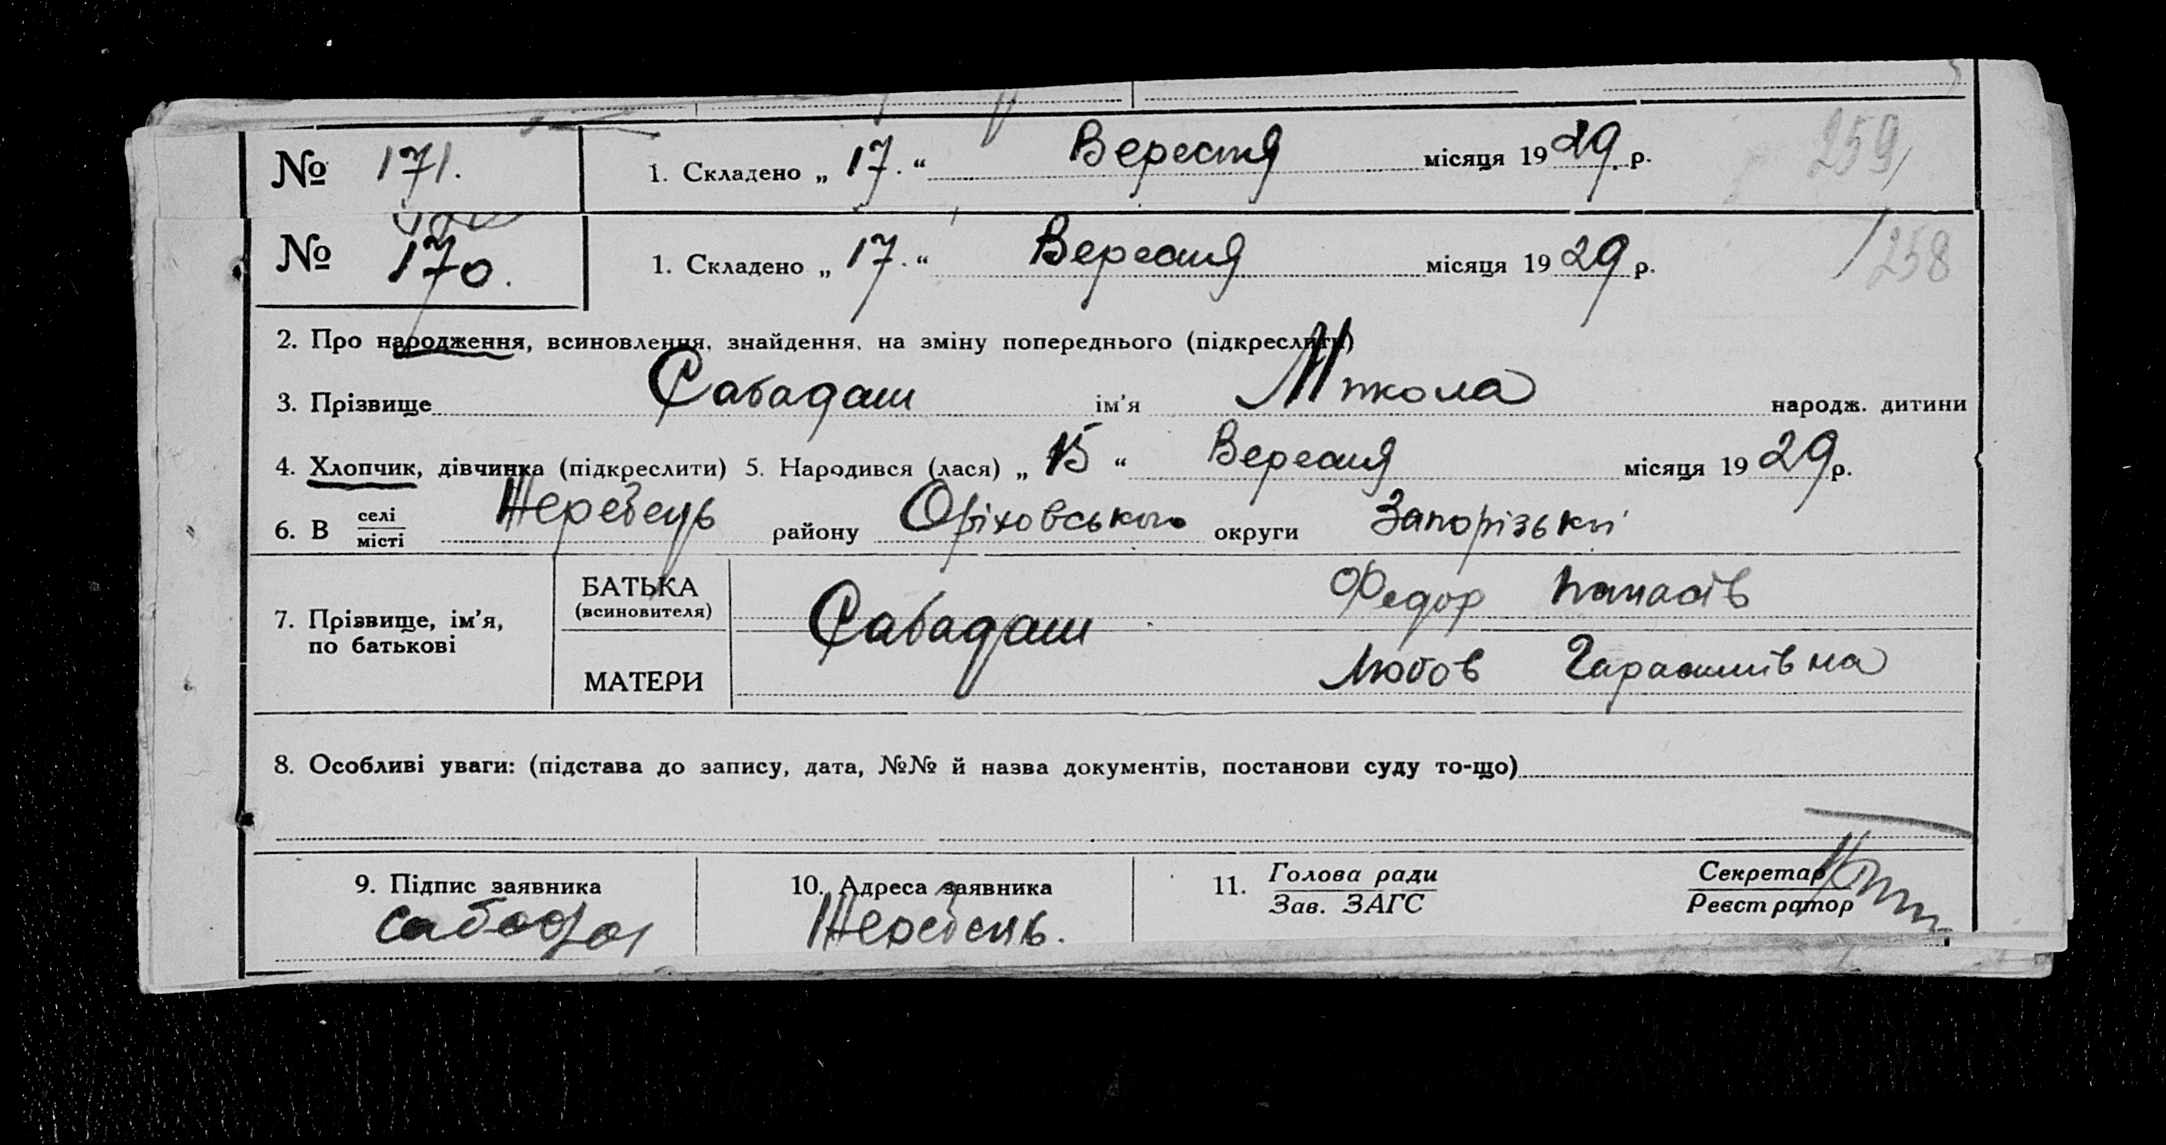 № 171. 1. Складено „ 17. “ Вересня місяця 1929 р. 259
№ 170. 1. Складено „ 17. “ Вересня місяця 1929 р. 258
2. Про народження, всиновлення, знайдення, на зміну попереднього (підкреслити)
3. Прізвище Сабадаш ім'я Микола народж. дитини
4. Хлопчик, дівчинка (підкреслити) 5. Народився (лася) „ 15 “ Вересня місяця 1929 р.
6. В селі місті Жеребець району Оріховського округи Запорізькій
7. Прізвище, ім'я, по батькові
БАТЬКА (всиновителя) Сабадаш Федор Панасів
МАТЕРИ Любов Гарасимівна
8. Особливі уваги: (підстава до запису, дата, №№ й назва документів, постанови суду то-що)
9. Підпис заявника 10. Адреса заявника 11. Голова ради Секретар
Зав. ЗАГС Реєстратор
Жеребець.